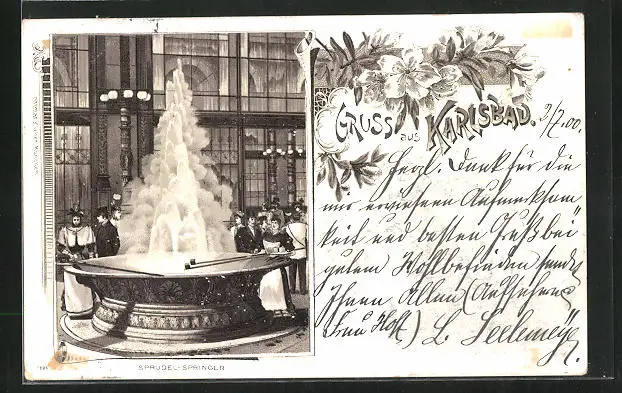 GRUSS aus KARLSBAD. 2/7.00.
Herzl. Dank für die
mir erwiesene Aufmerksam
keit und besten Gruß bei
gutem Wohlbefinden sendet
Ihnen Allen
Frau Hoff) L. Seelemeyer
SPRUDEL-SPRINGER